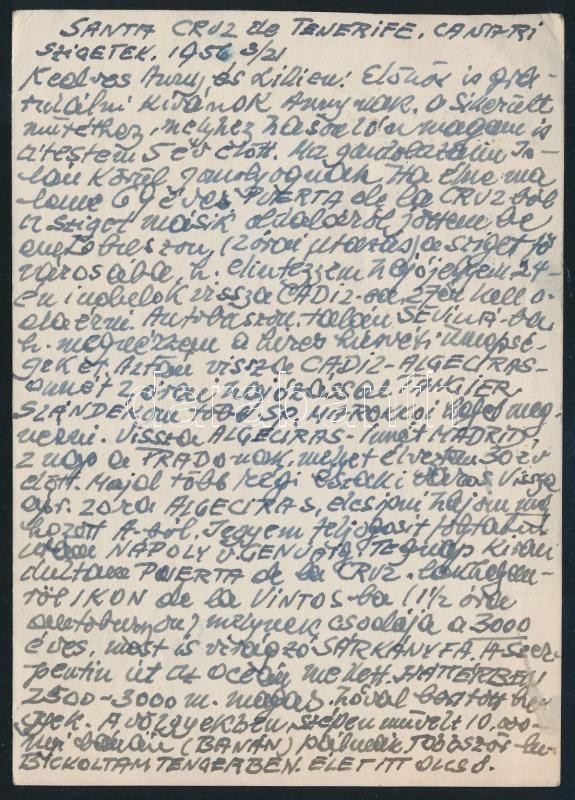 SANTA CRUZ de TENERIFE, CANARI
SZIGETEK, 1956 3/21
Kedves Anny és Lilien! Először is gra-
tulálni kívánok Annynak, a sikerült
műtéthez, melyhez hasonlón magam is
átestem 5 év előtt. Ma gondolataim
körül Ha elme ma
éves PUERTA de la CRUZ-ból
a sziget másik oldaláról jöttem be
(2 órai utazás) a sziget fő
városába, h. elintézzem hajójegyem 24-
én indulok vissza CADIZ-ba, 27én kell o-
da érni. Autobuszon talán SEVILLÁ-ba
h. megnézzem a híres húsvéti ünnepsé-
geket. Aztán vissza CADIZ-ALGECIRAS-
onnét 2 órai hajózással TANGIER
SZÁNDÉKOM több SP. MAROKKÓI helyet meg-
nézni. Vissza ALGECIRAS-innét MADRID,
2 nap a PRADO-nak, melyet élveztem 30 év
előtt. Majd több régi északi város. Vissza
apr. 20ra ALGECIRAS, elcsípni hajóm
hozott A-ból. Jegyem feljogosít
utam NAPOLY v. GENUÁIG. Tegnap kirán
dultam PUERTA de la CRUZ
ről IKON de la VINTOS-ba (1 1/2 óra
autobuszon) melynek csodája a 3000
éves, most is virágzó SÁRKÁNYFA. A szer-
pentin út az oceán mellett. HÁTTÉRBEN
2500-3000 m. magas, hóval borított he-
gyek. A völgyekben szépen művelt 10.000-
nyi banán (BANÁN) pálmák. Többször lu-
BICKOLTAM TENGERBEN. ÉLET ITT OLCSÓ.
darabanth